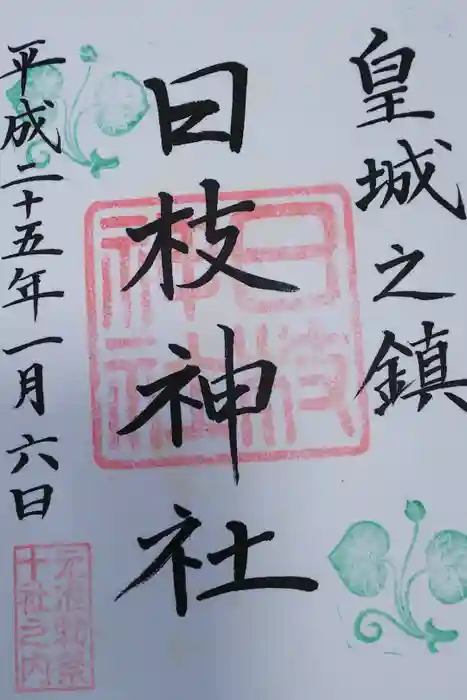 皇城之鎮
日枝神社
平成二十五年一月六日
日枝
神社
元准勅祭
十社之内